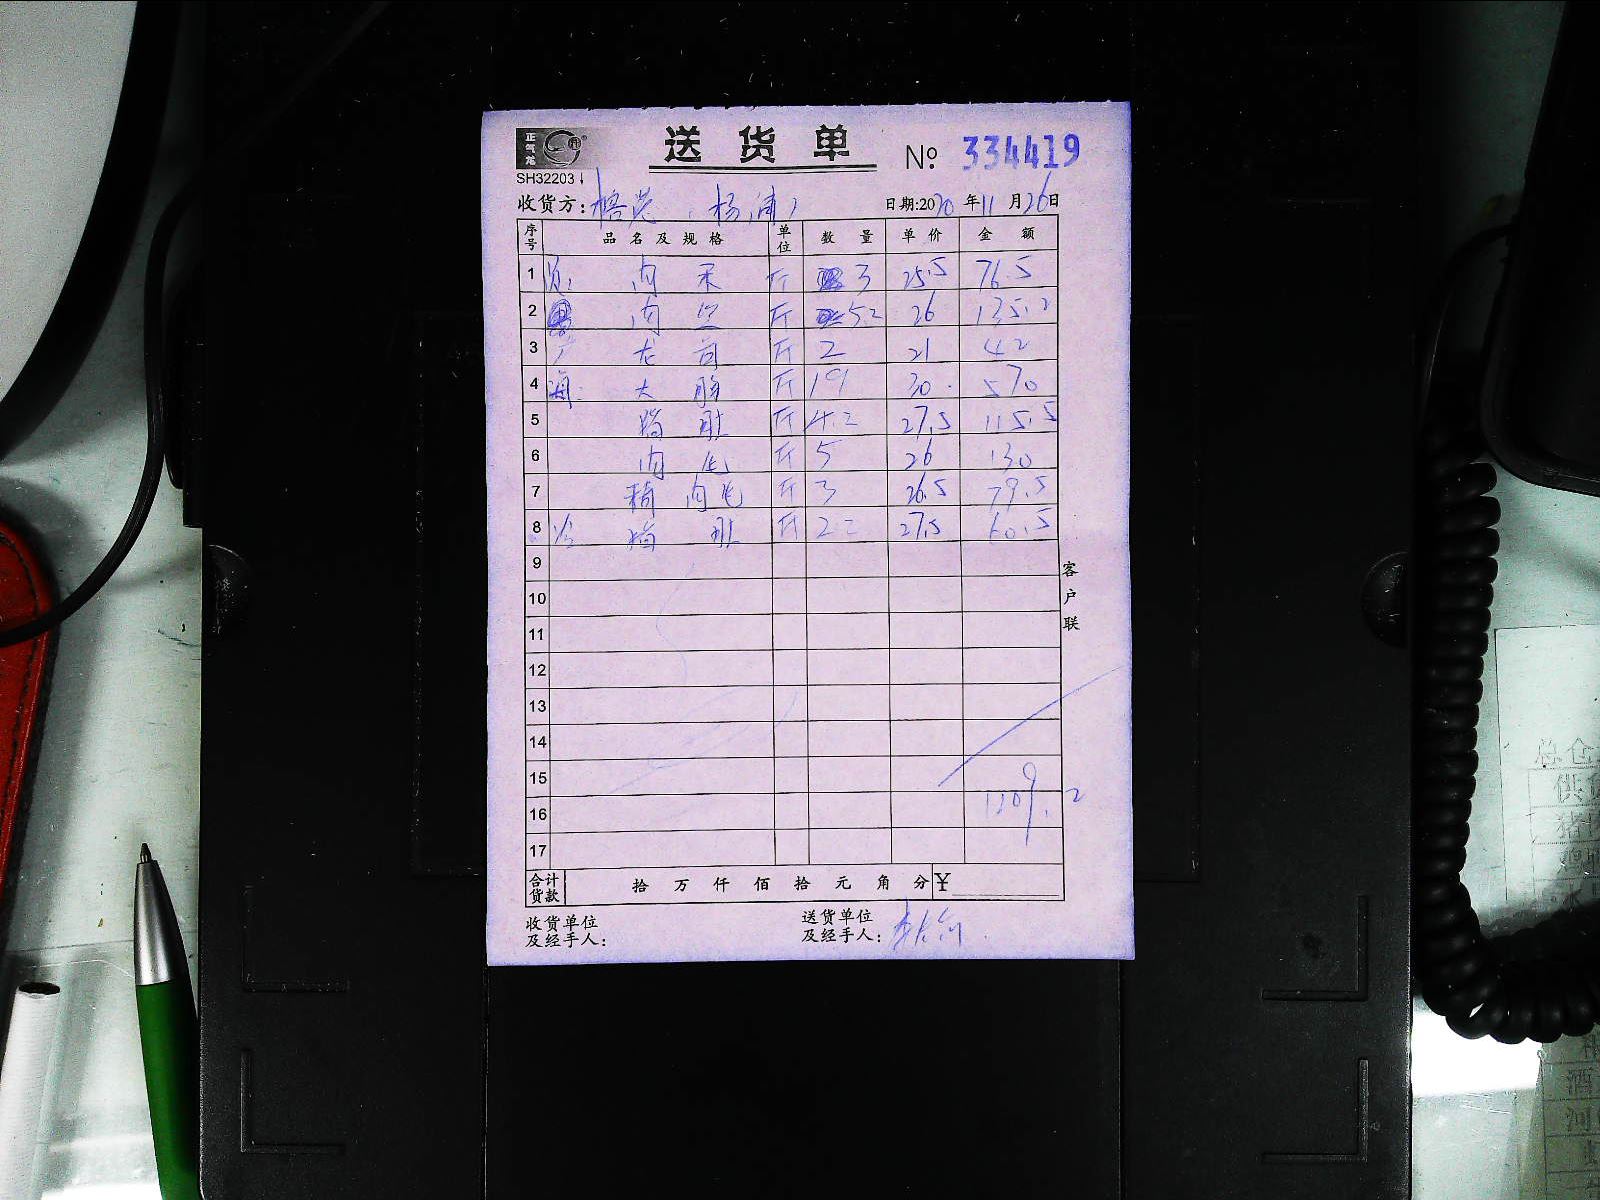 正气龙
送货单 № 334419
SH32203
收货方: (杨浦) 日期:2020年11月26日
序号 品名及规格 单位 数量 单价 金额
1 肉 斤 3 25.5 76.5
2 肉丝 斤 5.2 26 135.2
3 龙骨 斤 2 21 42
4 大肠 斤 19 30 570
5 斤 4.2 27.5 115.5
6 肉 斤 5 26 130
7 肉 斤 3 26.5 79.5
8 斤 2.2 27.5 60.5
9
10
11
12
13
14
15
16 1209.2
17
合计货款 拾 万 仟 佰 拾 元 角 分 ¥
收货单位及经手人:
送货单位及经手人:
客户联
总仓
酒
河